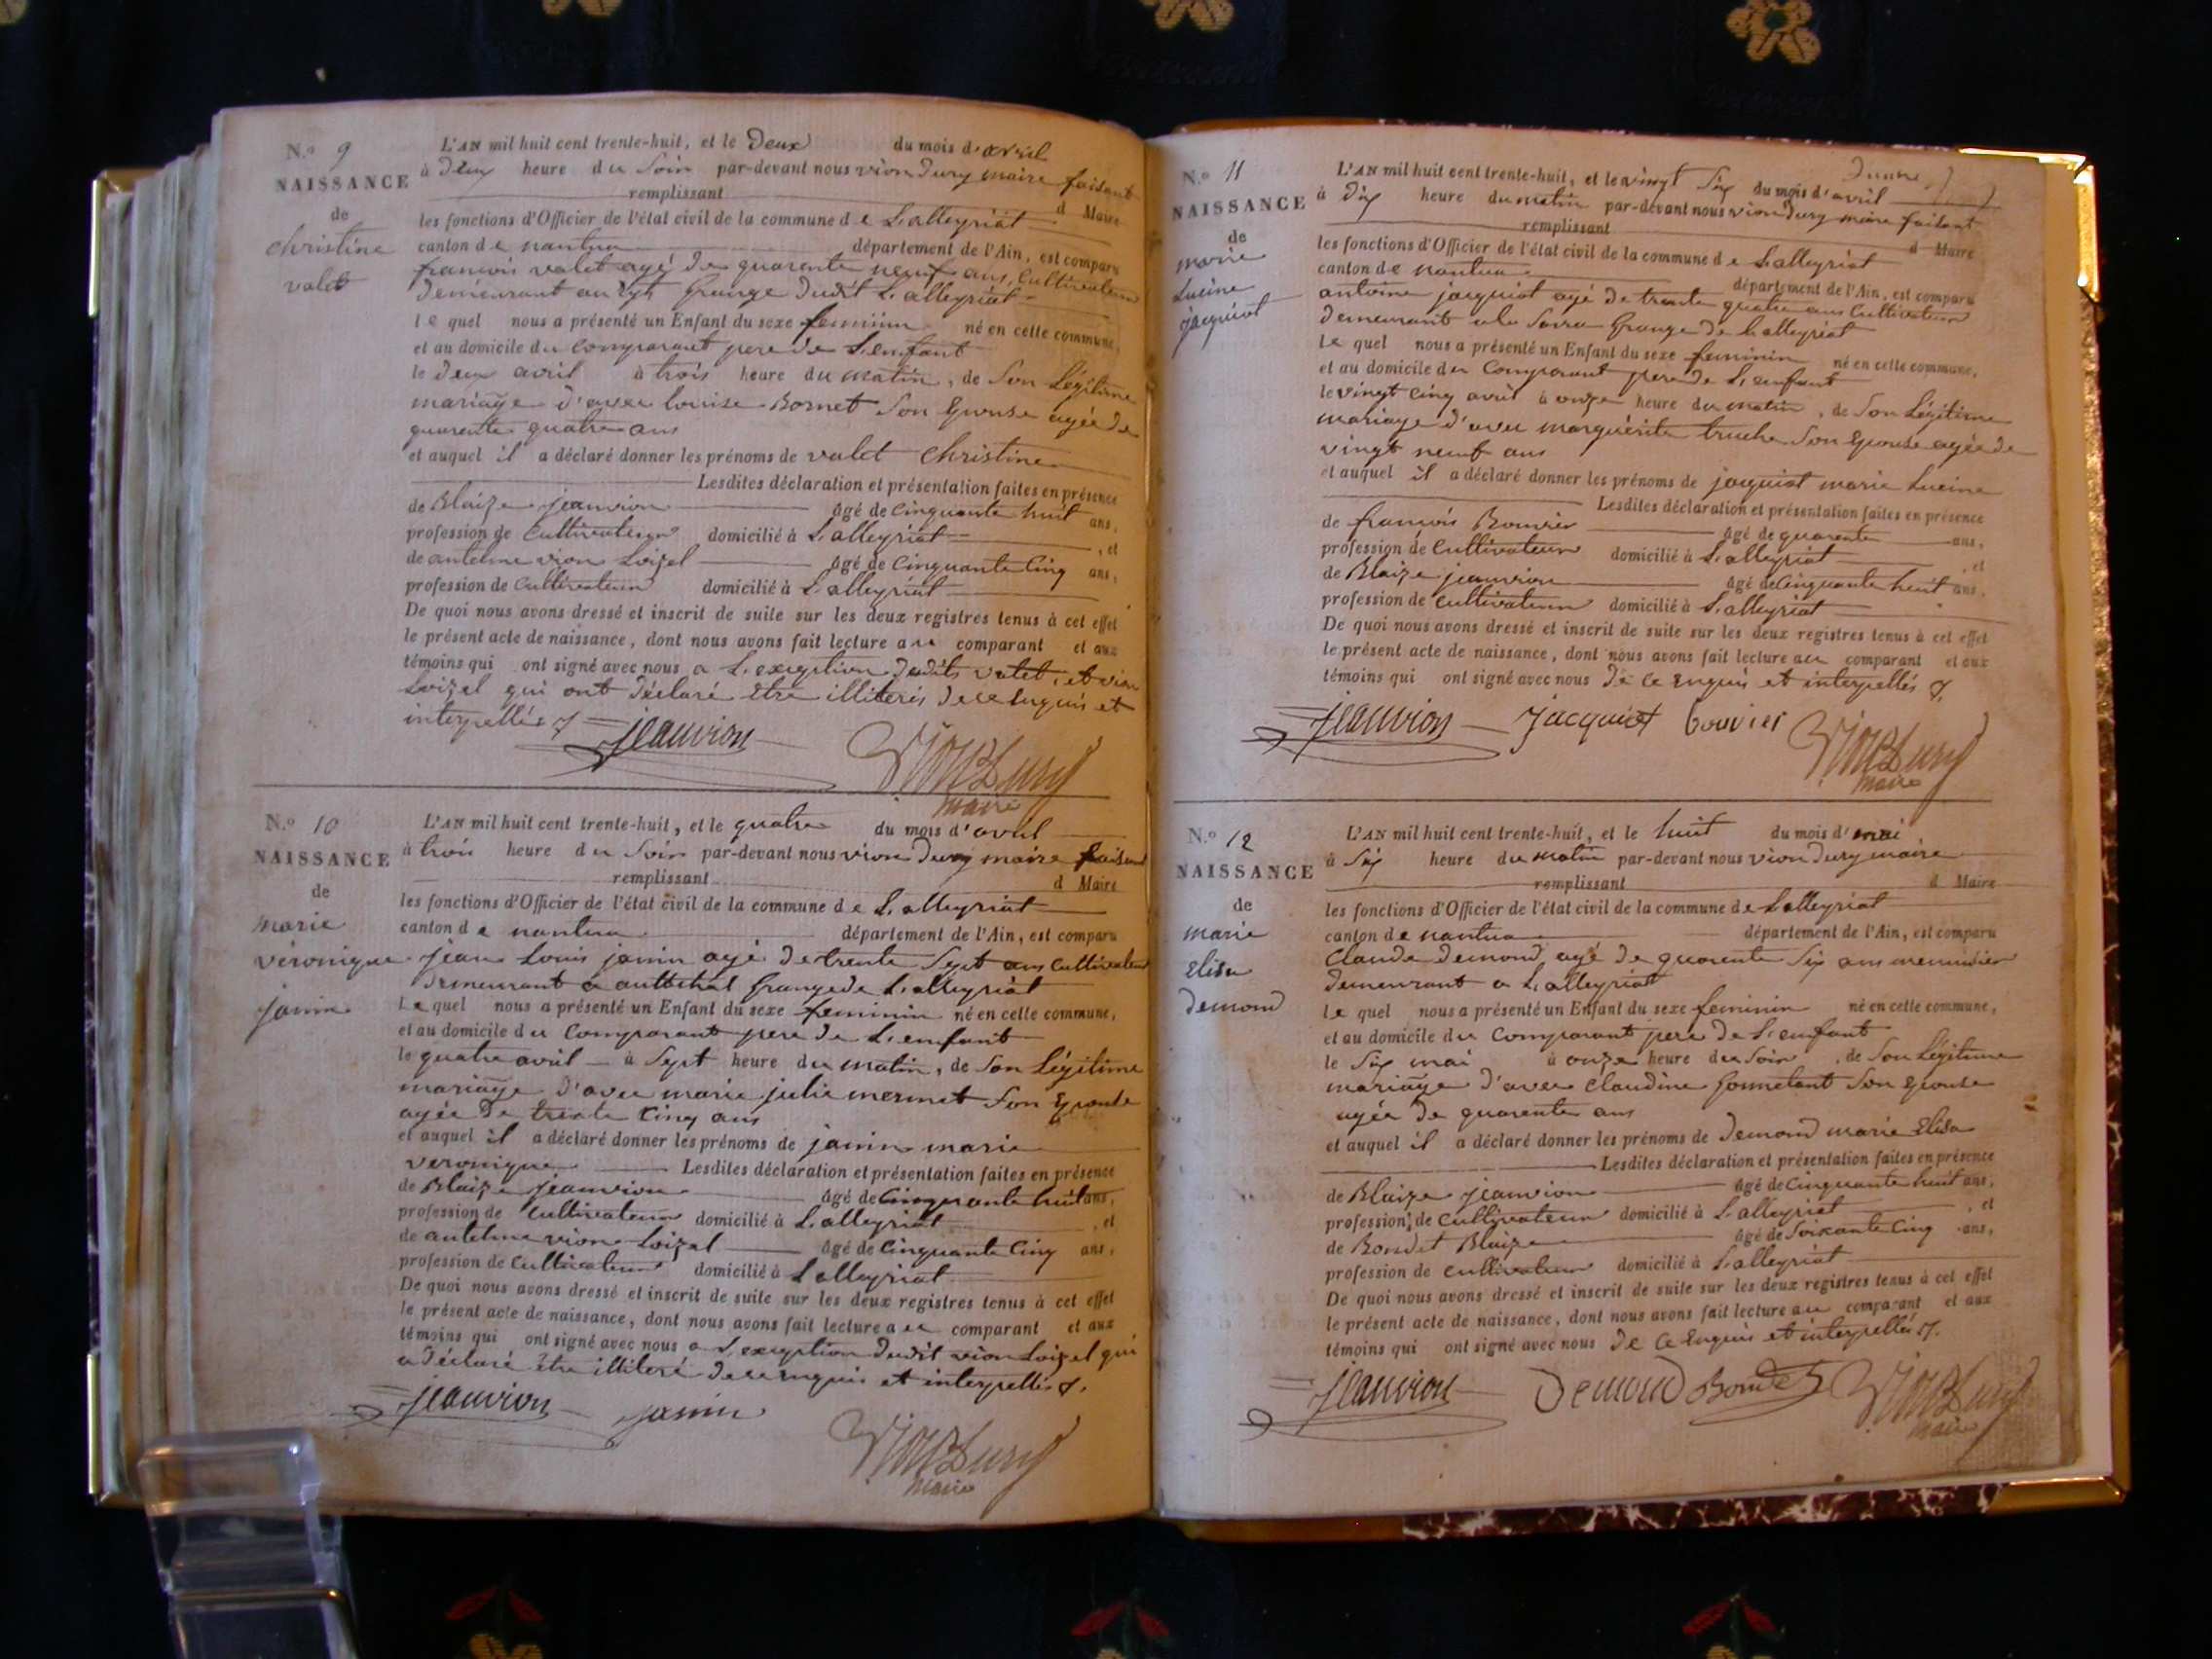 N.º 9
NAISSANCE
de
christine
valet
L'AN mil huit cent trente-huit, et le Deux du mois d'avril
à Deux heure du Soir par-devant nous vion Dury maire faisant
remplissant d Maire
les fonctions d'Officier de l'état civil de la commune de L'alleyriat
canton de nantua département de l'Ain, est comparu
françois valet agé de quarente neuf ans, Cultivateur
Demeurant au Grange Dudit L'alleyriat
le quel nous a présenté un Enfant du sexe feminin né en cette commune,
et au domicile du Comparant pere de L'enfant
le Deux avril à trois heure du matin, de Son Légitime
mariage d'avec louise Bornet Son Epouse agée de
quarente quatre ans
et auquel il a déclaré donner les prénoms de valet Christine
Lesdites déclaration et présentation faites en présence
de Blaize jeanvion âgé de Cinquante huit ans,
profession de Cultivateur domicilié à L'alleyriat , et
de antelme vion Loizel âgé de Cinquante Cinq ans,
profession de Cultivateur domicilié à L'alleyriat
De quoi nous avons dressé et inscrit de suite sur les deux registres tenus à cet effet
le présent acte de naissance, dont nous avons fait lecture au comparant et aux
témoins qui ont signé avec nous a L'exception Dudits valet, et vion
Loizel qui ont Déclaré être illiterés De ce Enquis et
interpellés
jeanvion VionDury
maire
N.º 10
NAISSANCE
de
marie
véronique
janin
L'AN mil huit cent trente-huit, et le quatre du mois d'avril
à trois heure du Soir par-devant nous vion Dury maire faisant
remplissant d Maire
les fonctions d'Officier de l'état civil de la commune de L'alleyriat
canton de nantua département de l'Ain, est comparu
jean Louis janin agé de trente Sept ans Cultivateur
Demeurant a Grange de L'alleyriat
Le quel nous a présenté un Enfant du sexe feminin né en cette commune,
et au domicile du Comparant pere de L'enfant
le quatre avril à Sept heure du matin, de Son Légitime
mariage D'avec marie julie mermet Son Epouse
agée De trente Cinq ans
et auquel il a déclaré donner les prénoms de janin marie
veronique Lesdites déclaration et présentation faites en présence
de Blaize jeanvion âgé de Cinquante huit ans,
profession de Cultivateur domicilié à L'alleyriat , et
de antelme vion Loizel âgé de Cinquante Cinq ans,
profession de Cultivateur domicilié à L'alleyriat
De quoi nous avons dressé et inscrit de suite sur les deux registres tenus à cet effet
le présent acte de naissance, dont nous avons fait lecture au comparant et aux
témoins qui ont signé avec nous a L'exception Dudit vion Loizel qui
a Déclaré être illiteré De ce enquis et interpellés
jeanvion janin VionDury
maire
N.º 11
NAISSANCE
de
marie
Lucine
jacquiot
L'AN mil huit cent trente-huit, et le vingt Six du mois d'avril
à Dix heure du matin par-devant nous vion Dury maire faisant
remplissant d Maire
les fonctions d'Officier de l'état civil de la commune de L'alleyriat
canton de nantua département de l'Ain, est comparu
antoine jacquiot agé De trente quatre ans Cultivateur
Demeurant a la Serra Grange de L'alleyriat
Le quel nous a présenté un Enfant du sexe feminin né en cette commune,
et au domicile du Comparant pere de L'enfant
le vingt Cinq avril à onze heure du matin, de Son Légitime
mariage D'avec marguérite truche Son Epouse agée de
vingt neuf ans
et auquel il a déclaré donner les prénoms de jacquiot marie Lucine
Lesdites déclaration et présentation faites en présence
de françois Bouvier âgé de quarente ans,
profession de Cultivateur domicilié à L'alleyriat , et
de Blaize jeanvion âgé de Cinquante huit ans,
profession de Cultivateur domicilié à L'alleyriat
De quoi nous avons dressé et inscrit de suite sur les deux registres tenus à cet effet
le présent acte de naissance, dont nous avons fait lecture au comparant et aux
témoins qui ont signé avec nous De ce Enquis et interpellés
jeanvion Jacquiot bouvier VionDury
maire
N.º 12
NAISSANCE
de
marie
Elisa
Demond
L'AN mil huit cent trente-huit, et le huit du mois d'mai
à Six heure du matin par-devant nous vion Dury maire
remplissant d Maire
les fonctions d'Officier de l'état civil de la commune de L'alleyriat
canton de nantua département de l'Ain, est comparu
Claude Demond agé de quarente Six ans menuisier
Demeurant a L'alleyriat
le quel nous a présenté un Enfant du sexe feminin né en cette commune,
et au domicile du Comparant pere De L'enfant
le Six mai à onze heure du Soir, de Son Légitime
mariage D'avec Claudine Gonnetant Son Epouse
agée De quarente ans
et auquel il a déclaré donner les prénoms de Demond marie Elisa
Lesdites déclaration et présentation faites en présence
de Blaize jeanvion âgé de Cinquante huit ans,
profession de Cultivateur domicilié à L'alleyriat , et
de Bondet Blaize âgé de Soixante Cinq ans,
profession de Cultivateur domicilié à L'alleyriat
De quoi nous avons dressé et inscrit de suite sur les deux registres tenus à cet effet
le présent acte de naissance, dont nous avons fait lecture au comparant et aux
témoins qui ont signé avec nous De Ce Enquis et interpellés
jeanvion Demond Bondet VionDury
maire